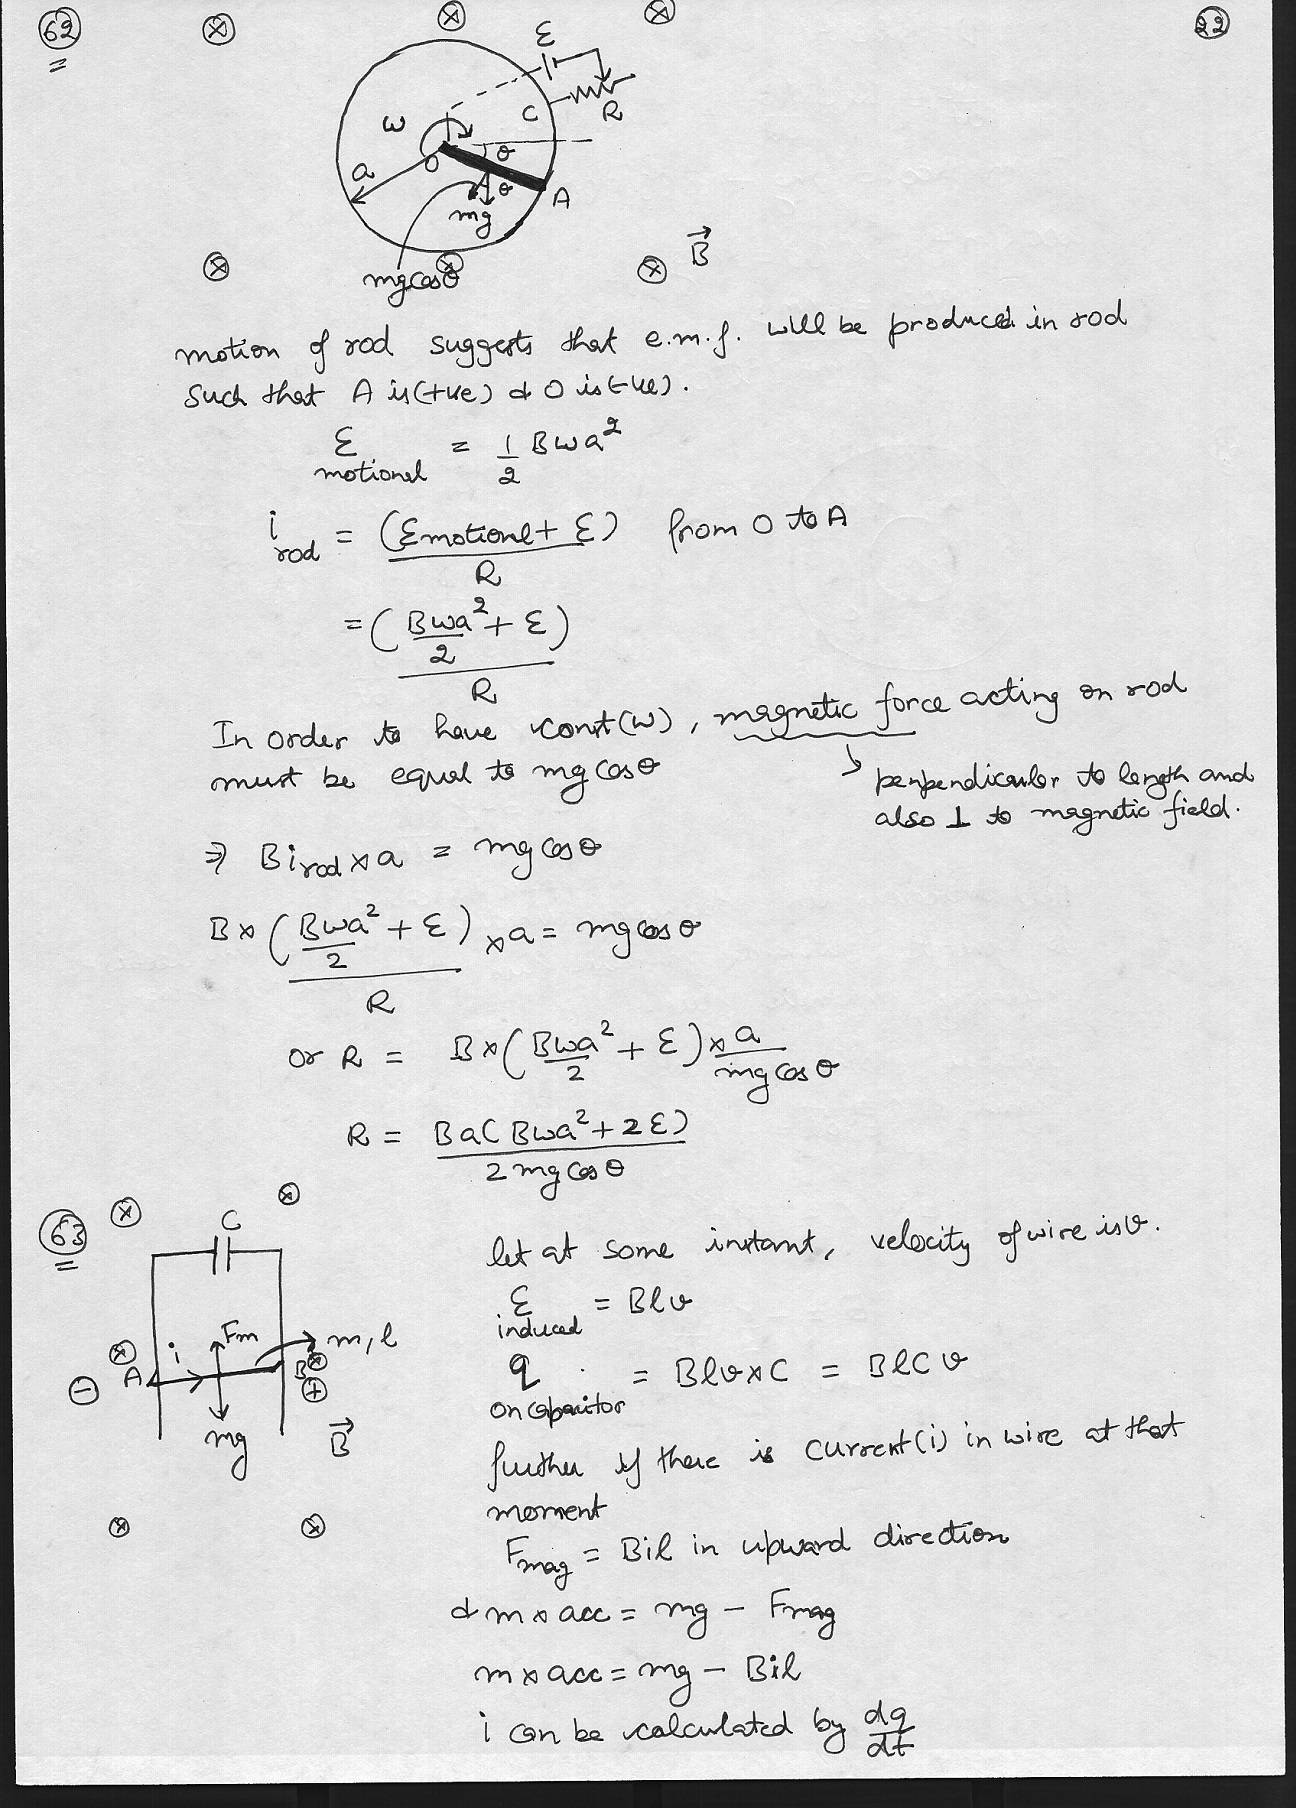 62
22
ε
C
R
ω
a
O
θ
θ
A
mg
mg cosθ
B⃗
motion of rod suggests that e.m.f. will be produced in rod
Such that A is (+ve) & O is (-ve).
ε motional = 1/2 Bωa²
i rod = (ε motional + ε)/R from O to A
= (Bωa²/2 + ε)/R
In order to have const(ω), magnetic force acting on rod
must be equal to mg cosθ
perpendicular to length and
also ⊥ to magnetic field.
⇒ B i rod × a = mg cosθ
B × (Bωa²/2 + ε)/R × a = mg cosθ
or R = B × (Bωa²/2 + ε) × a/mg cosθ
R = Ba(Bωa² + 2ε)/2mg cosθ
63
C
Fm
i
m, l
A
B
mg
B⃗
let at some instant, velocity of wire is v.
ε induced = Blv
q on capacitor = Blv×C = BlCv
further if there is current (i) in wire at that
moment
Fmag = Bil in upward direction
& m × acc = mg - Fmag
m × acc = mg - Bil
i can be calculated by dq/dt